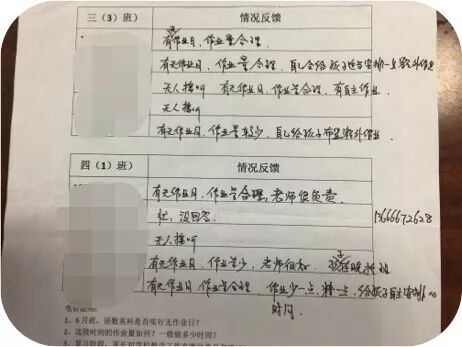 三（3）班 情况反馈
有无作业日，作业量合理。
有无作业日，作业量合理，自己会给孩子适当安排一点额外作业
无人接听 有无作业日，作业量合理，有自主作业
无人接听
有无作业日，作业量较少，自己给孩子布置额外作业。
四（1）班 情况反馈
有无作业日，作业量合理，老师很负责
忙，没回答。
无人接听
有无作业日，作业量少，老师很好，孩子在晚托班
有无作业日，作业量合理 作业少一点，精一点，给孩子自主
时间。
1、6月前，语数英科是否实行无作业日？
2、这段时间的作业量如何？一般做多少时间？